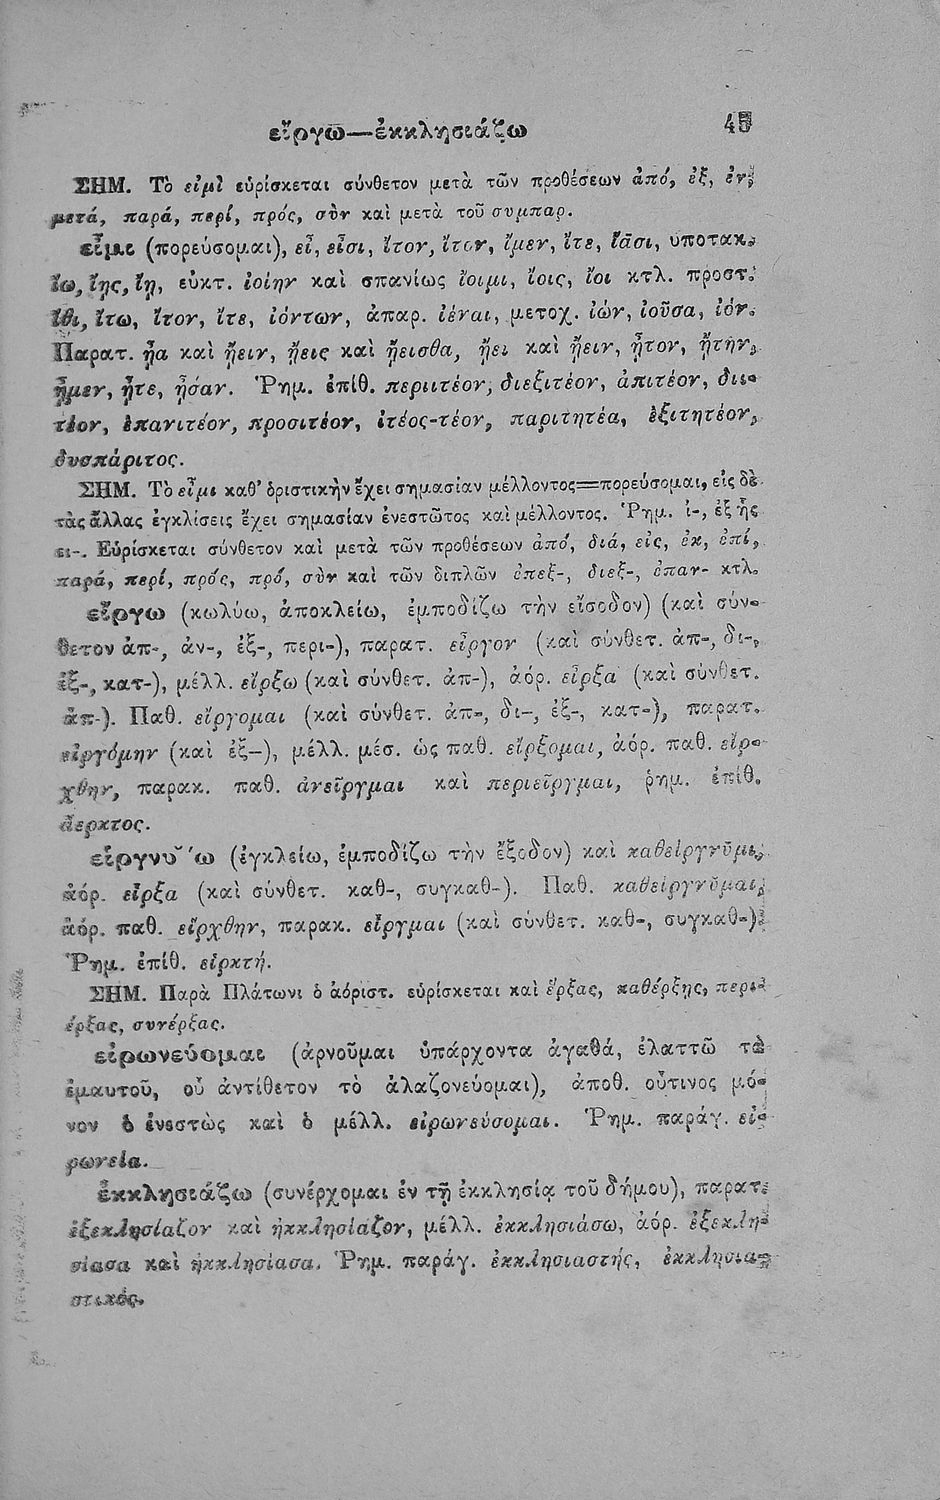 εἴργω—ἐκκλησιάζω 45
ΣΗΜ. Τὸ εἰμὶ εὑρίσκεται σύνθετον μετὰ τῶν προθέσεων ἀπό, ἐξ, ἐν,
μετά, παρά, περί, πρός, σὺν καὶ μετὰ τοῦ συμπαρ.
εἶμι (πορεύσομαι), εἶ, εἶσι, ἴτον, ἴτον, ἴμεν, ἴτε, ἴασι, ὑποτακ.
ἴω, ἴῃς, ἴῃ, εὐκτ. ἰοίην καὶ σπανίως ἴοιμι, ἴοις, ἴοι κτλ. προστ.
ἴθι, ἴτω, ἴτον, ἴτε, ἰόντων, ἀπαρ. ἰέναι, μετοχ. ἰών, ἰοῦσα, ἰόν.
Παρατ. ᾖα καὶ ᾔειν, ᾔεις καὶ ᾔεισθα, ᾔει καὶ ᾔειν, ᾖτον, ᾔτην,
ᾖμεν, ᾖτε, ᾖσαν. Ῥημ. ἐπίθ. περιιτέον, διεξιτέον, ἀπιτέον, διι-
τέον, ἐπανιτέον, προσιτέον, ἰτέος-τέον, παριτητέα, ἐξιτητέον,
δυσπάριτος.
ΣΗΜ. Τὸ εἶμι καθ᾽ ὁριστικὴν ἔχει σημασίαν μέλλοντος=πορεύσομαι, εἰς δὲ
τὰς ἄλλας ἐγκλίσεις ἔχει σημασίαν ἐνεστῶτος καὶ μέλλοντος. Ῥημ. ἰ-, ἐξ ἧς
ει-. Εὑρίσκεται σύνθετον καὶ μετὰ τῶν προθέσεων ἀπό, διά, εἰς, ἐκ, ἐπί,
παρά, περί, πρός, πρό, σὺν καὶ τῶν διπλῶν ἐπεξ-, διεξ-, ἐπαν- κτλ.
εἴργω (κωλύω, ἀποκλείω, ἐμποδίζω τὴν εἴσοδον) (καὶ σύν-
θετον ἀπ-, ἀν-, ἐξ-, περι-), παρατ. εἶργον (καὶ σύνθετ. ἀπ-, δι-,
ἐξ-, κατ-), μέλλ. εἴρξω (καὶ σύνθετ. ἀπ-), ἀόρ. εἶρξα (καὶ σύνθετ.
ἀπ-). Παθ. εἴργομαι (καὶ σύνθετ. ἀπ-, δι-, ἐξ-, κατ-), παρατ.
εἰργόμην (καὶ ἐξ-), μέλλ. μέσ. ὡς παθ. εἴρξομαι, ἀόρ. παθ. εἴρ-
χθην, παρακ. παθ. ἀνεῖργμαι καὶ περιεῖργμαι, ῥημ. ἐπίθ.
ἄερκτος.
εἱργνυ῎ω (ἐγκλείω, ἐμποδίζω τὴν ἔξοδον) καὶ καθείργνῡμι,
ἀόρ. εἷρξα (καὶ σύνθετ. καθ-, συγκαθ-). Παθ. καθείργνῡμαι,
ἀόρ. παθ. εἵρχθην, παρακ. εἷργμαι (καὶ σύνθετ. καθ-, συγκαθ-).
Ῥημ. ἐπίθ. εἱρκτή.
ΣΗΜ. Παρὰ Πλάτωνι ὁ ἀόριστ. εὑρίσκεται καὶ ἕρξας, καθέρξῃς, περι-
έρξας, συνέρξας.
εἰρωνεύομαι (ἀρνοῦμαι ὑπάρχοντα ἀγαθά, ἐλαττῶ τὰ
ἐμαυτοῦ, οὗ ἀντίθετον τὸ ἀλαζονεύομαι), ἀποθ. οὗτινος μό-
νον ὁ ἐνεστὼς καὶ ὁ μέλλ. εἰρωνεύσομαι. Ῥημ. παράγ. εἰ-
ρωνεία.
ἐκκλησιάζω (συνέρχομαι ἐν τῇ ἐκκλησίᾳ τοῦ δήμου), παρατ.
ἐξεκλησίαζον καὶ ἠκκλησίαζον, μέλλ. ἐκκλησιάσω, ἀόρ. ἐξεκλη-
σίασα καὶ ἠκκλησίασα. Ῥημ. παράγ. ἐκκλησιαστής, ἐκκλησια-
στικός.